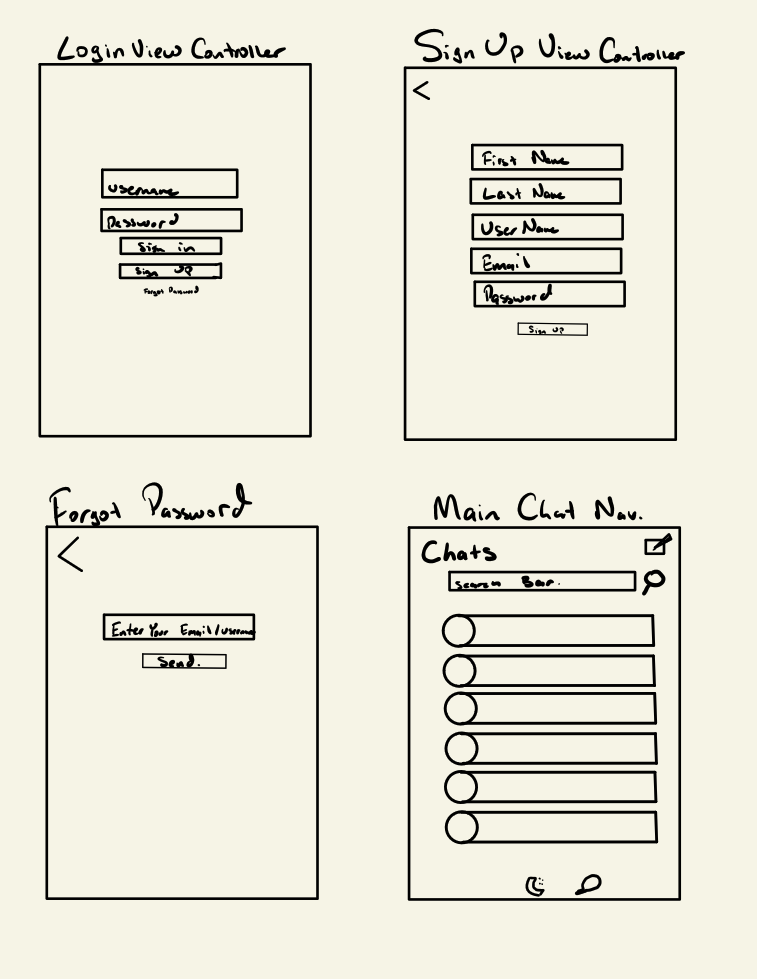 Login View Controller
username
Password
Sign in
Sign Up
Forgot Password
Sign Up View Controller
First Name
Last Name
User Name
Email
Password
Sign up
Forgot Password
Enter Your Email/username
Send.
Main Chat Nav.
Chats
Search Bar.